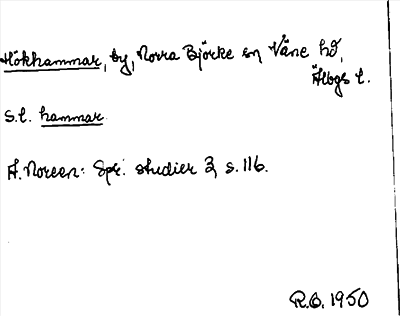 Hökhammar, by, Norra Björke sn Väne hd,
Älvbgs l.
S.l. hammar
A. Noreen: Spr. studier 3, s. 116.
R.O. 1950